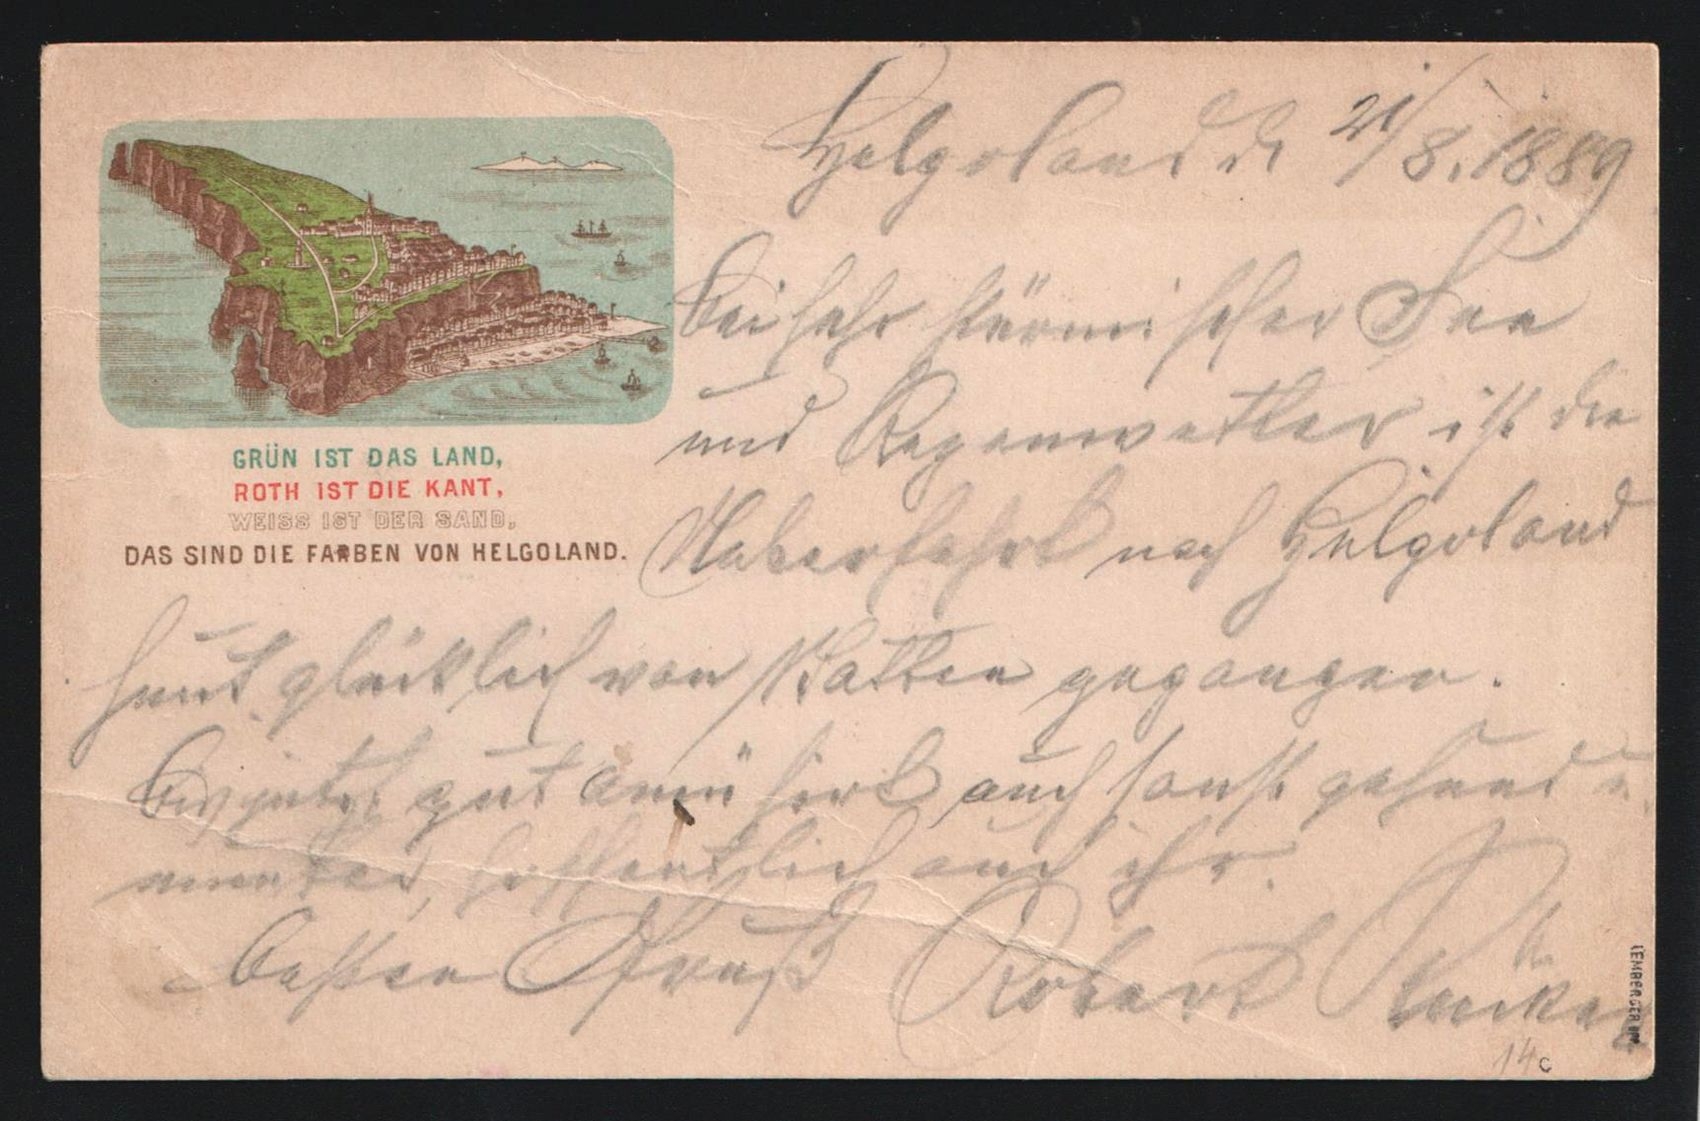 GRÜN IST DAS LAND,
ROTH IST DIE KANT,
WEISS IST DER SAND,
DAS SIND DIE FARBEN VON HELGOLAND.
Helgoland d. 21/8. 1889
Bei sehr stürmischer See
und Regenwetter ist die
Ueberfahrt nach Helgoland
heut glücklich von Statten gegangen.
gut amüsirt auch sonst gesund u.
munter, hoffentlich auch ihr.
besten Gruß Robert
LEMBERGER
14c